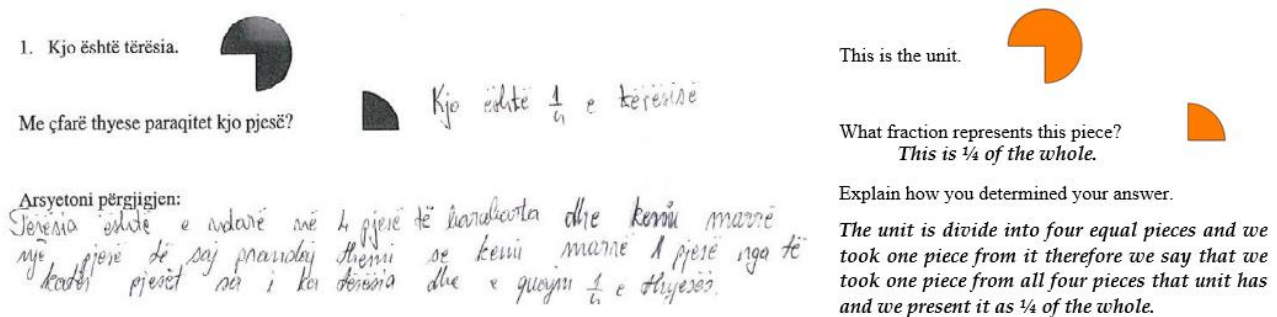 1. Kjo është tërësia.
Me çfarë thyese paraqitet kjo pjesë?
Kjo është 1/4 e tërësisë
Arsyetoni përgjigjen:
Tërësia është e ndarë në 4 pjesë të barabarta dhe kemi marrë
një pjesë të saj prandaj themi se kemi marrë 1 pjesë nga të
katër pjesët sa i ka tërësia dhe e quajm 1/4 e thyesës.
This is the unit.
What fraction represents this piece?
This is ¼ of the whole.
Explain how you determined your answer.
The unit is divide into four equal pieces and we
took one piece from it therefore we say that we
took one piece from all four pieces that unit has
and we present it as ¼ of the whole.